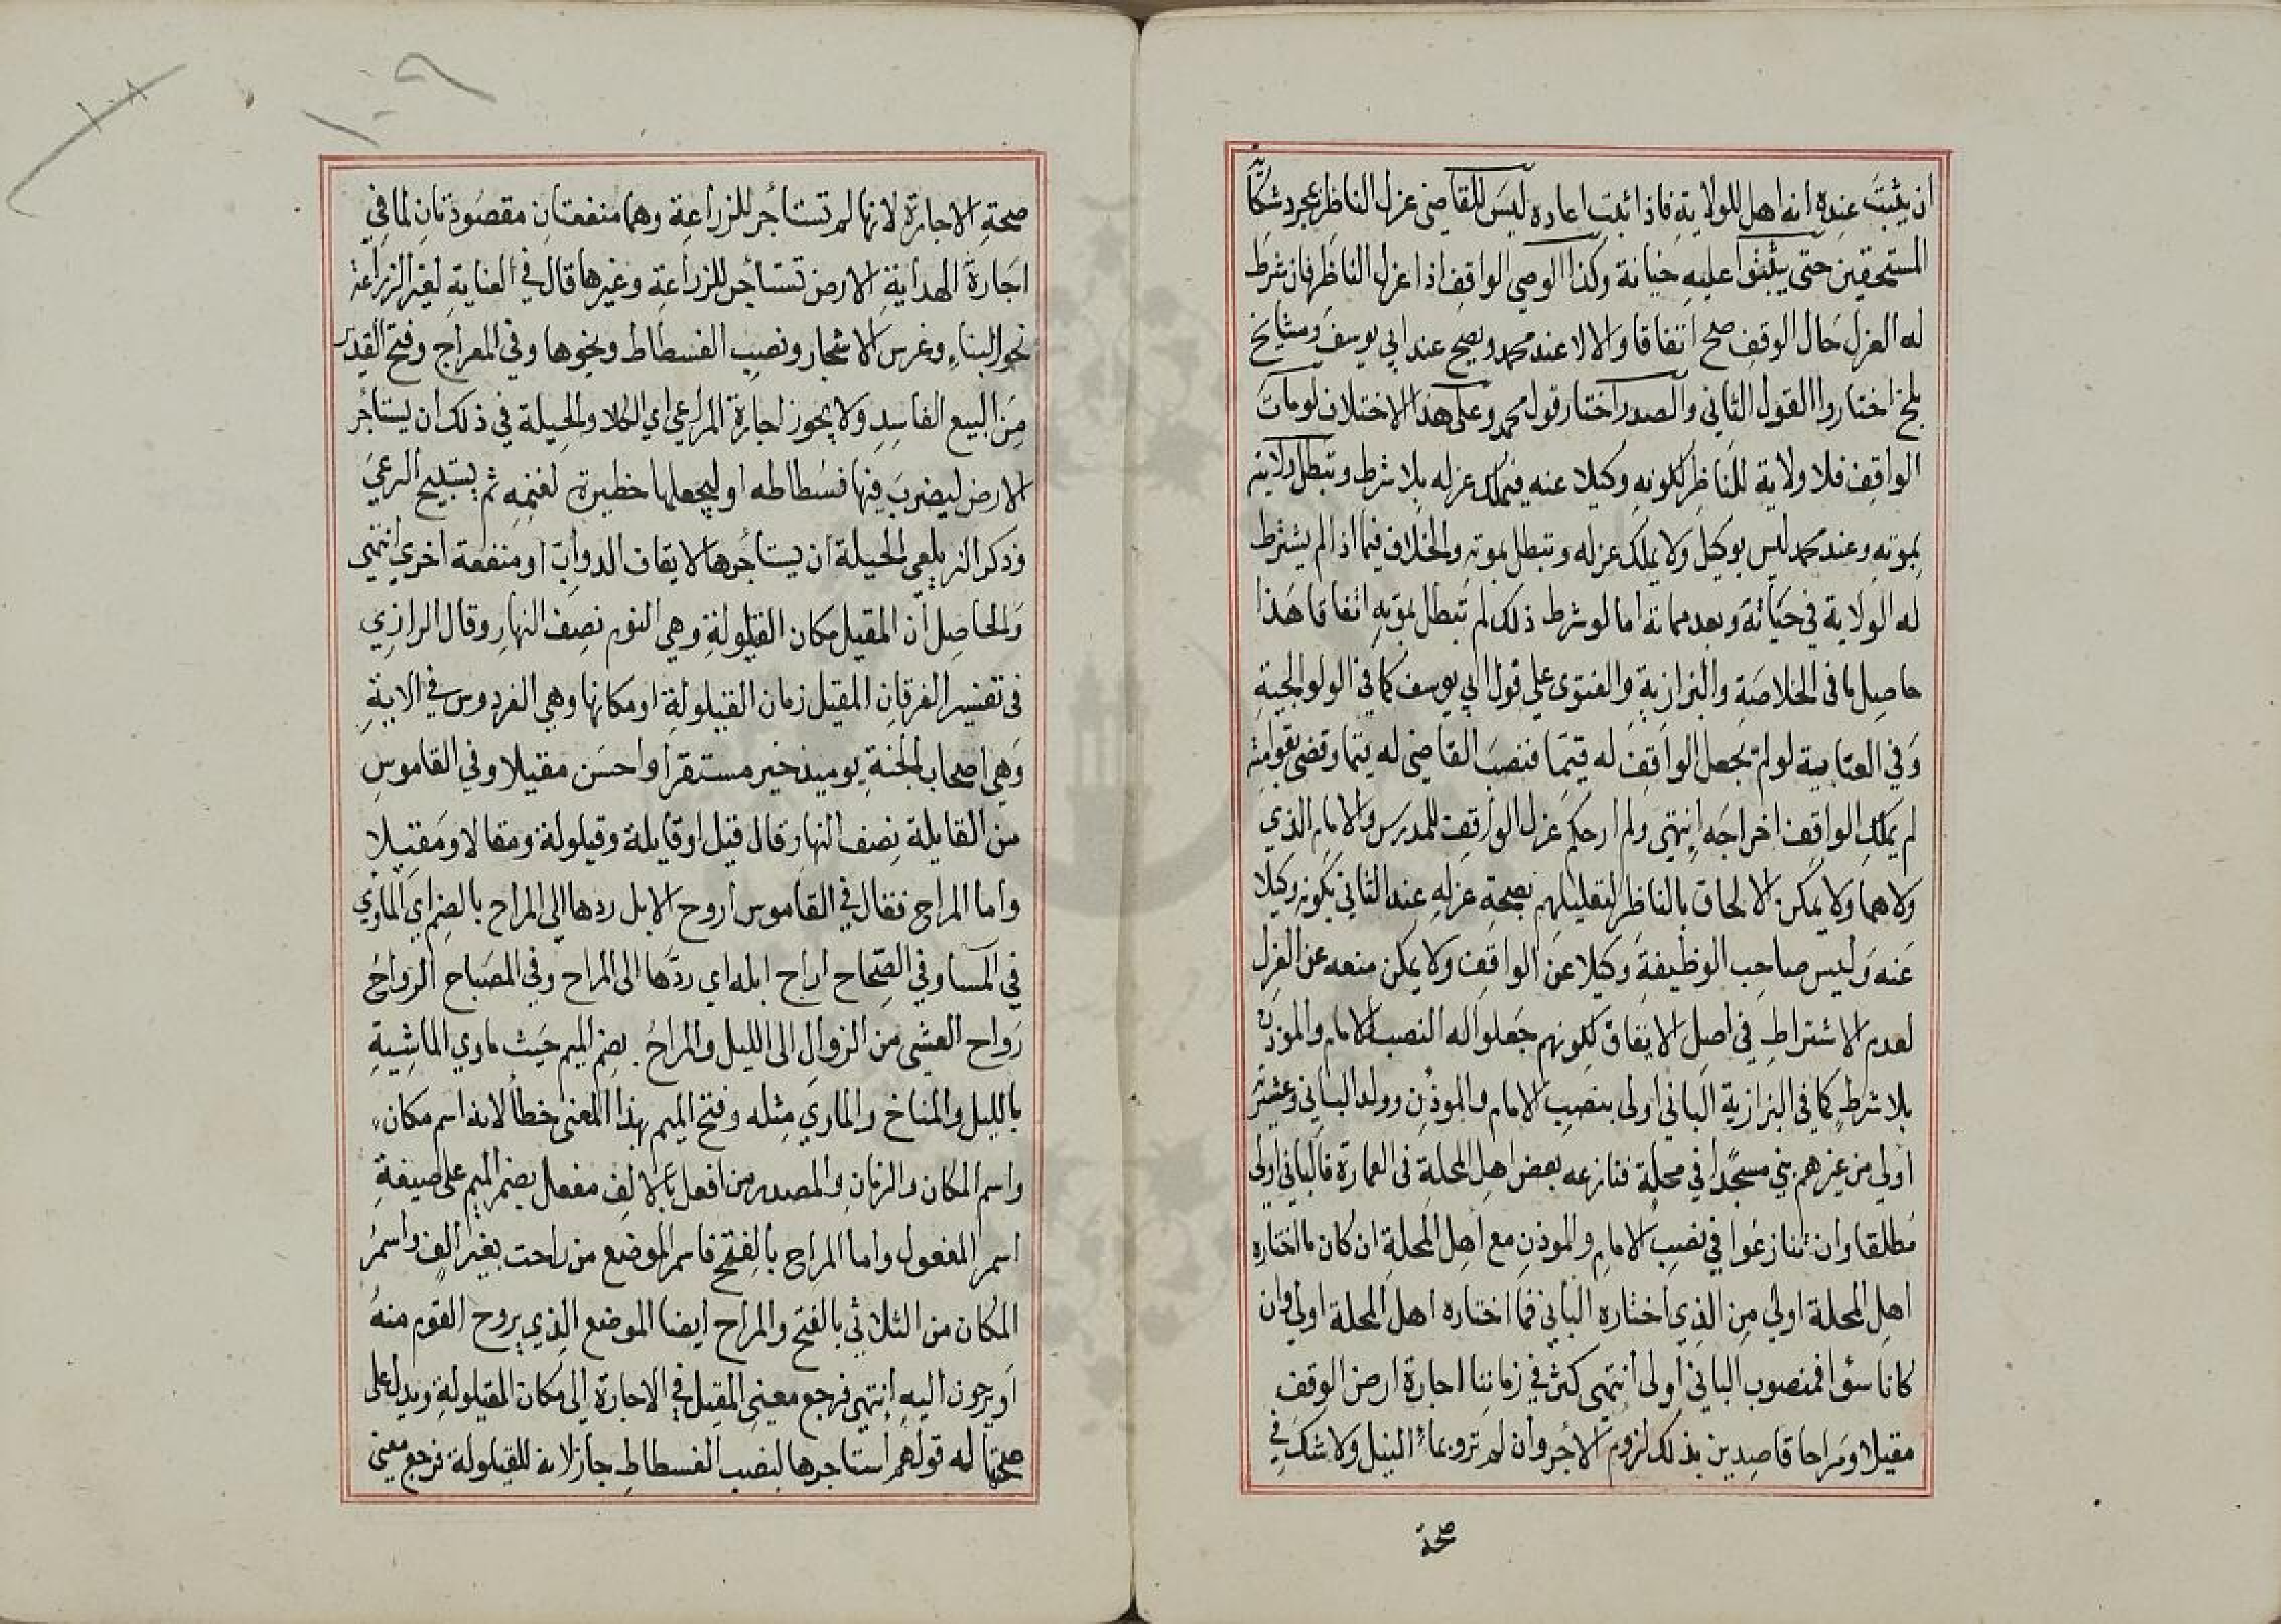 ان يثبت عنده انه اهل للولاية فاذا اثبت اعاده ليس للقاضي عزل الناظر بمجرد شكاية
المستحقين حتى يثبتوا عليه خيانة وكذا الوصي الواقف اذا عزل الناظر فان شرط
له العزل حال الوقف صح اتفاقا والا لا عند محمد ويصح عند ابي يوسف ومشايخ
بلخ اختاروا القول الثاني والصدر اختار قول محمد وعلى هذا الاختلاف لو مات
الواقف فلا ولاية للناظر لكونه وكيلا عنه فيملك عزله بلا شرط وتبطل ولايته
بموته وعند محمد ليس بوكيل ولا يملك عزله وتبطل بموته والخلاف فيما اذا لم يشترط
له الولاية في حياته وبعد مماته اما لو شرط ذلك لم تبطل بموته اتفاقا هذا
حاصل ما في الخلاصة والبزازية والفتوى على قول ابي يوسف كما في الولوالجية
وفي العتابية لو لم يجعل الواقف له قيما فنصب القاضي له قيما وقضى بقوامته
لم يملك الواقف اخراجه انتهى ولم ار حكم عزل الواقف للمدرس والامام الذي
ولاهما ولا يمكن الالحاق بالناظر لتعليلهم بصحة عزله عند الثاني بكونه وكيلا
عنه وليس صاحب الوظيفة وكيلا عن الواقف ولا يمكن منعه عن العزل
لعدم الاشتراط في اصل الايقاف لكونهم جعلوا له النصب للامام والموذن
بلا شرط كما في البزازية الباني اولى بنصب الامام والموذن وولد الباني وعشيرته
اولى من غيرهم بنى مسجدا في محلة فنازعه بعض اهل المحلة في العمارة فالباني اولى
مطلقا وان تنازعوا في نصب الامام والموذن مع اهل المحلة ان كان ما اختاره
اهل المحلة اولى من الذي اختاره الباني فما اختاره اهل المحلة اولى وان
كانا سواء فمنصوب الباني اولى انتهى كثر في زماننا اجارة ارض الوقف
مقيلا ومراحا قاصدين بذلك لزوم الاجر وان لم ترو بماء النيل ولا شك في
صحة
صحة الاجارة لانها لم تستأجر للزراعة وهما منفعتان مقصودتان لما في
اجارة الهداية الارض تستأجر للزراعة وغيرها قال في العناية لغير الزراعة
نحو البناء وغرس الاشجار ونصب الفسطاط ونحوها وفي المعراج وفتح القدير
من البيع الفاسد ولا يجوز اجارة المراعي اي الكلا والحيلة في ذلك ان يستأجر
الارض ليضرب فيها فسطاطه او ليجعلها حظيرة لغنمه ثم يستبيح الرعي
وذكر الزيلعي الحيلة ان يستأجرها لايقاف الدواب او منفعة اخرى انتهى
والحاصل ان المقيل مكان القيلولة وهي النوم نصف النهار وقال الرازي
في تفسير الفرقان المقيل زمان القيلولة او مكانها وهي الفردوس في الاية
وهي اصحاب الجنة يوميذ خير مستقرا واحسن مقيلا وفي القاموس
من القايلة نصف النهار وقال قيل او قايلة وقيلولة ومقالا ومقيلا
واما المراح فقال في القاموس اروح الابل ردها الى المراح بالضم اي الماوي
في المسا وفي الصحاح اراح ابله اي ردها الى المراح وفي المصباح الرواح
رواح العشي من الزوال الى الليل والمراح بضم الميم حيث ماوي الماشية
بالليل والمناخ والماوي مثله وفتح الميم بهذا المعنى خطأ لانه اسم مكان
واسم المكان والزمان والمصدر من افعل بالالف مفعل بضم الميم على صيغة
اسم المفعول واما المراح بالفتح فاسم الموضع من راحت بغير الف واسم
المكان من الثلاثي بالفتح والمراح ايضا الموضع الذي يروح القوم منه
او يرجون اليه انتهى فرجع معنى المقيل في الاجارة الى مكان القيلولة ويدل على
صحتها له قولهم استاجرها لنصب الفسطاط جاز لانه للقيلولة فرجع معنى